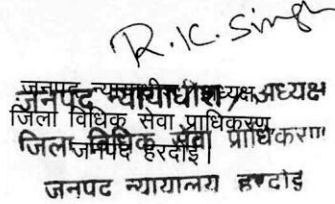 R.K. Singh
जनपद न्यायाधीश/अध्यक्ष
जनपद न्यायाधीश/अध्यक्ष
जिला विधिक सेवा प्राधिकरण,
जिला विधिक सेवा प्राधिकरण
जनपद हरदोई।
जनपद न्यायालय हरदोई